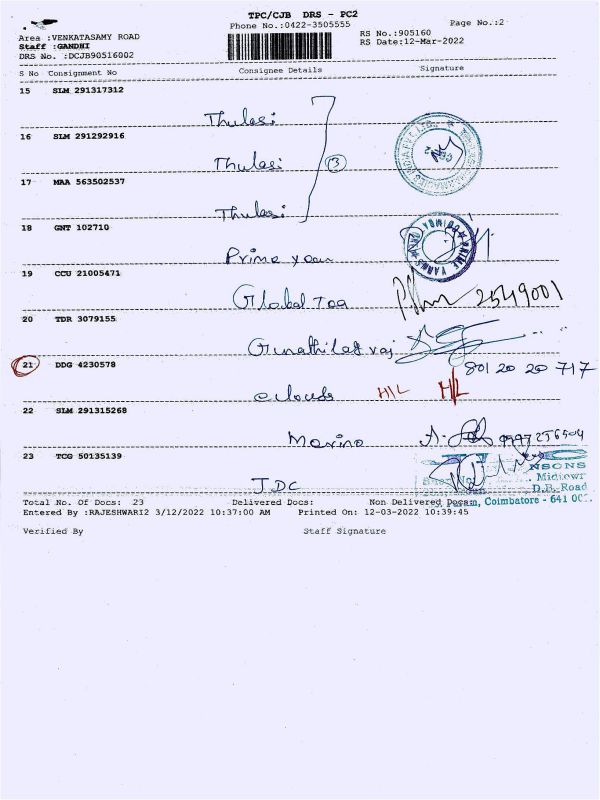 TPC/CJB DRS - PC2
Phone No.:0422-3505555
Page No.:2
Area :VENKATASAMY ROAD
RS No.:905160
Staff :GANDHI
RS Date:12-Mar-2022
DRS No. :DCJB90516002
S No Consignment No Consignee Details Signature
15 SLM 291317312
Thulasi
16 SLM 291292916
Thulasi 3
17 MAA 563502537
Thulasi
18 GNT 102710
Prime yarn
19 CCU 21005471
Global Tea 2549001
20 TDR 3079155
Gunathilagraj
21 DDG 4230578 801 20 20 717
clouds H/L H/L
22 SLM 291315268
Marino 9997256504
23 TCG 50135139
NSONS
Midtowr
JDC
D.B. Road
Total No. Of Docs: 23 Delivered Docs: Non Delivered Docs:
Puram, Coimbatore - 641 00
Entered By :RAJESHWARI2 3/12/2022 10:37:00 AM Printed On: 12-03-2022 10:39:45
Verified By Staff Signature